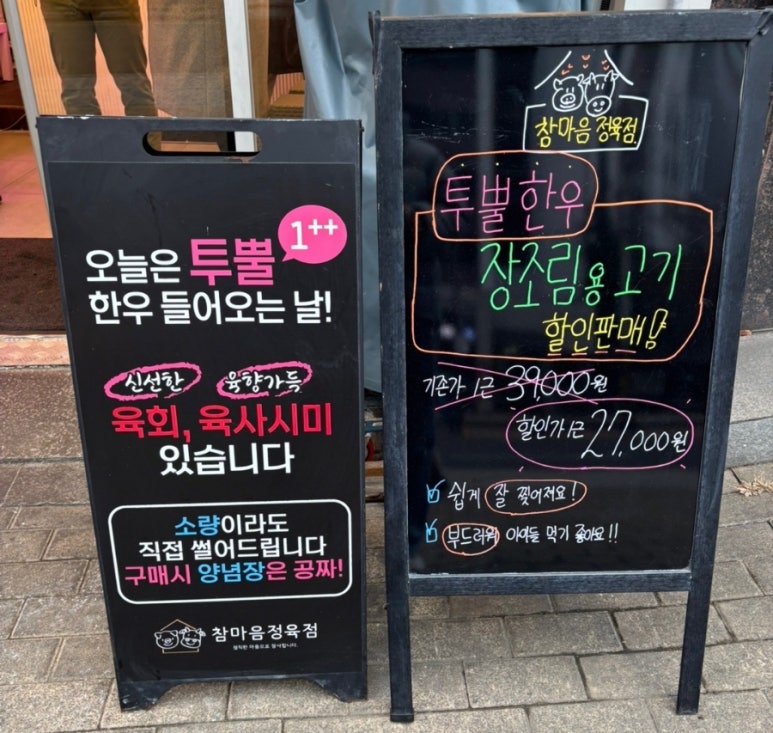 오늘은 투뿔 1++
한우 들어오는 날!
신선한 육향가득
육회, 육사시미
있습니다
소량이라도
직접 썰어드립니다
구매시 양념장은 공짜!
참마음정육점
정직한 마음으로 답례합니다.
참마음 정육점
투뿔 한우
장조림용 고기
할인판매!
기존가 1근 39,000원
할인가 1근 27,000원
쉽게 잘 찢어져요!
부드러워 아이들 먹기 좋아요!!